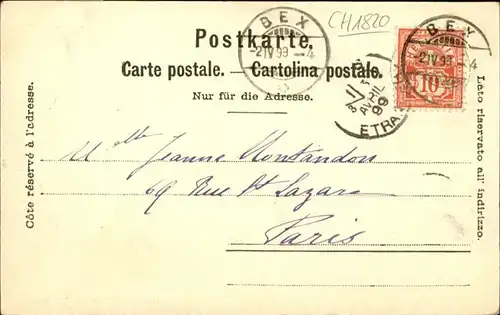 CH1820
BEX
-2 IV 99 - 4
Postkarte.
Carte postale. — Cartolina postale.
Nur für die Adresse.
BEX
-2 IV 99 - 4
HELVETIA
10
AVRIL
99
ETRA
Côté réservé à l'adresse.
Lato riservato all' indirizzo.
Mlle Jeanne Montandon
69 Rue St Lazare
Paris